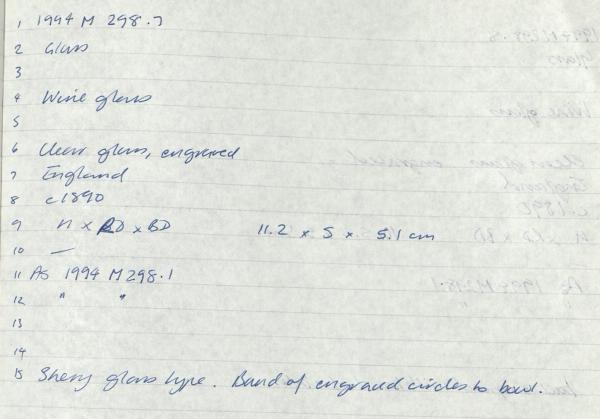 1 1994 M 298.7
2 Glass
3
4 Wine glass
5
6 Clear glass, engraved
7 England
8 c1890
9 H x RD x BD 11.2 x 5 x 5.1 cm
10 —
11 As 1994 M 298.1
12 " "
13
14
15 Sherry glass type. Band of engraved circles to bowl.